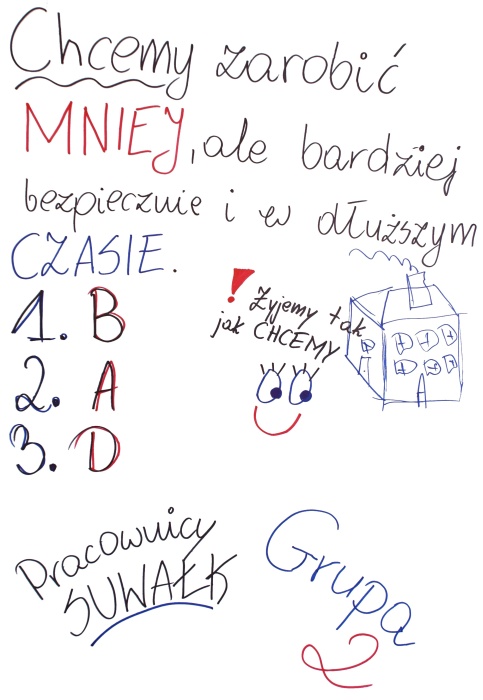 Chcemy zarobić
MNIEJ, ale bardziej
bezpiecznie i w dłuższym
CZASIE.
1. B
2. A
3. D
! Żyjemy tak
jak CHCEMY
Pracownicy
SUWAŁK
Grupa
2